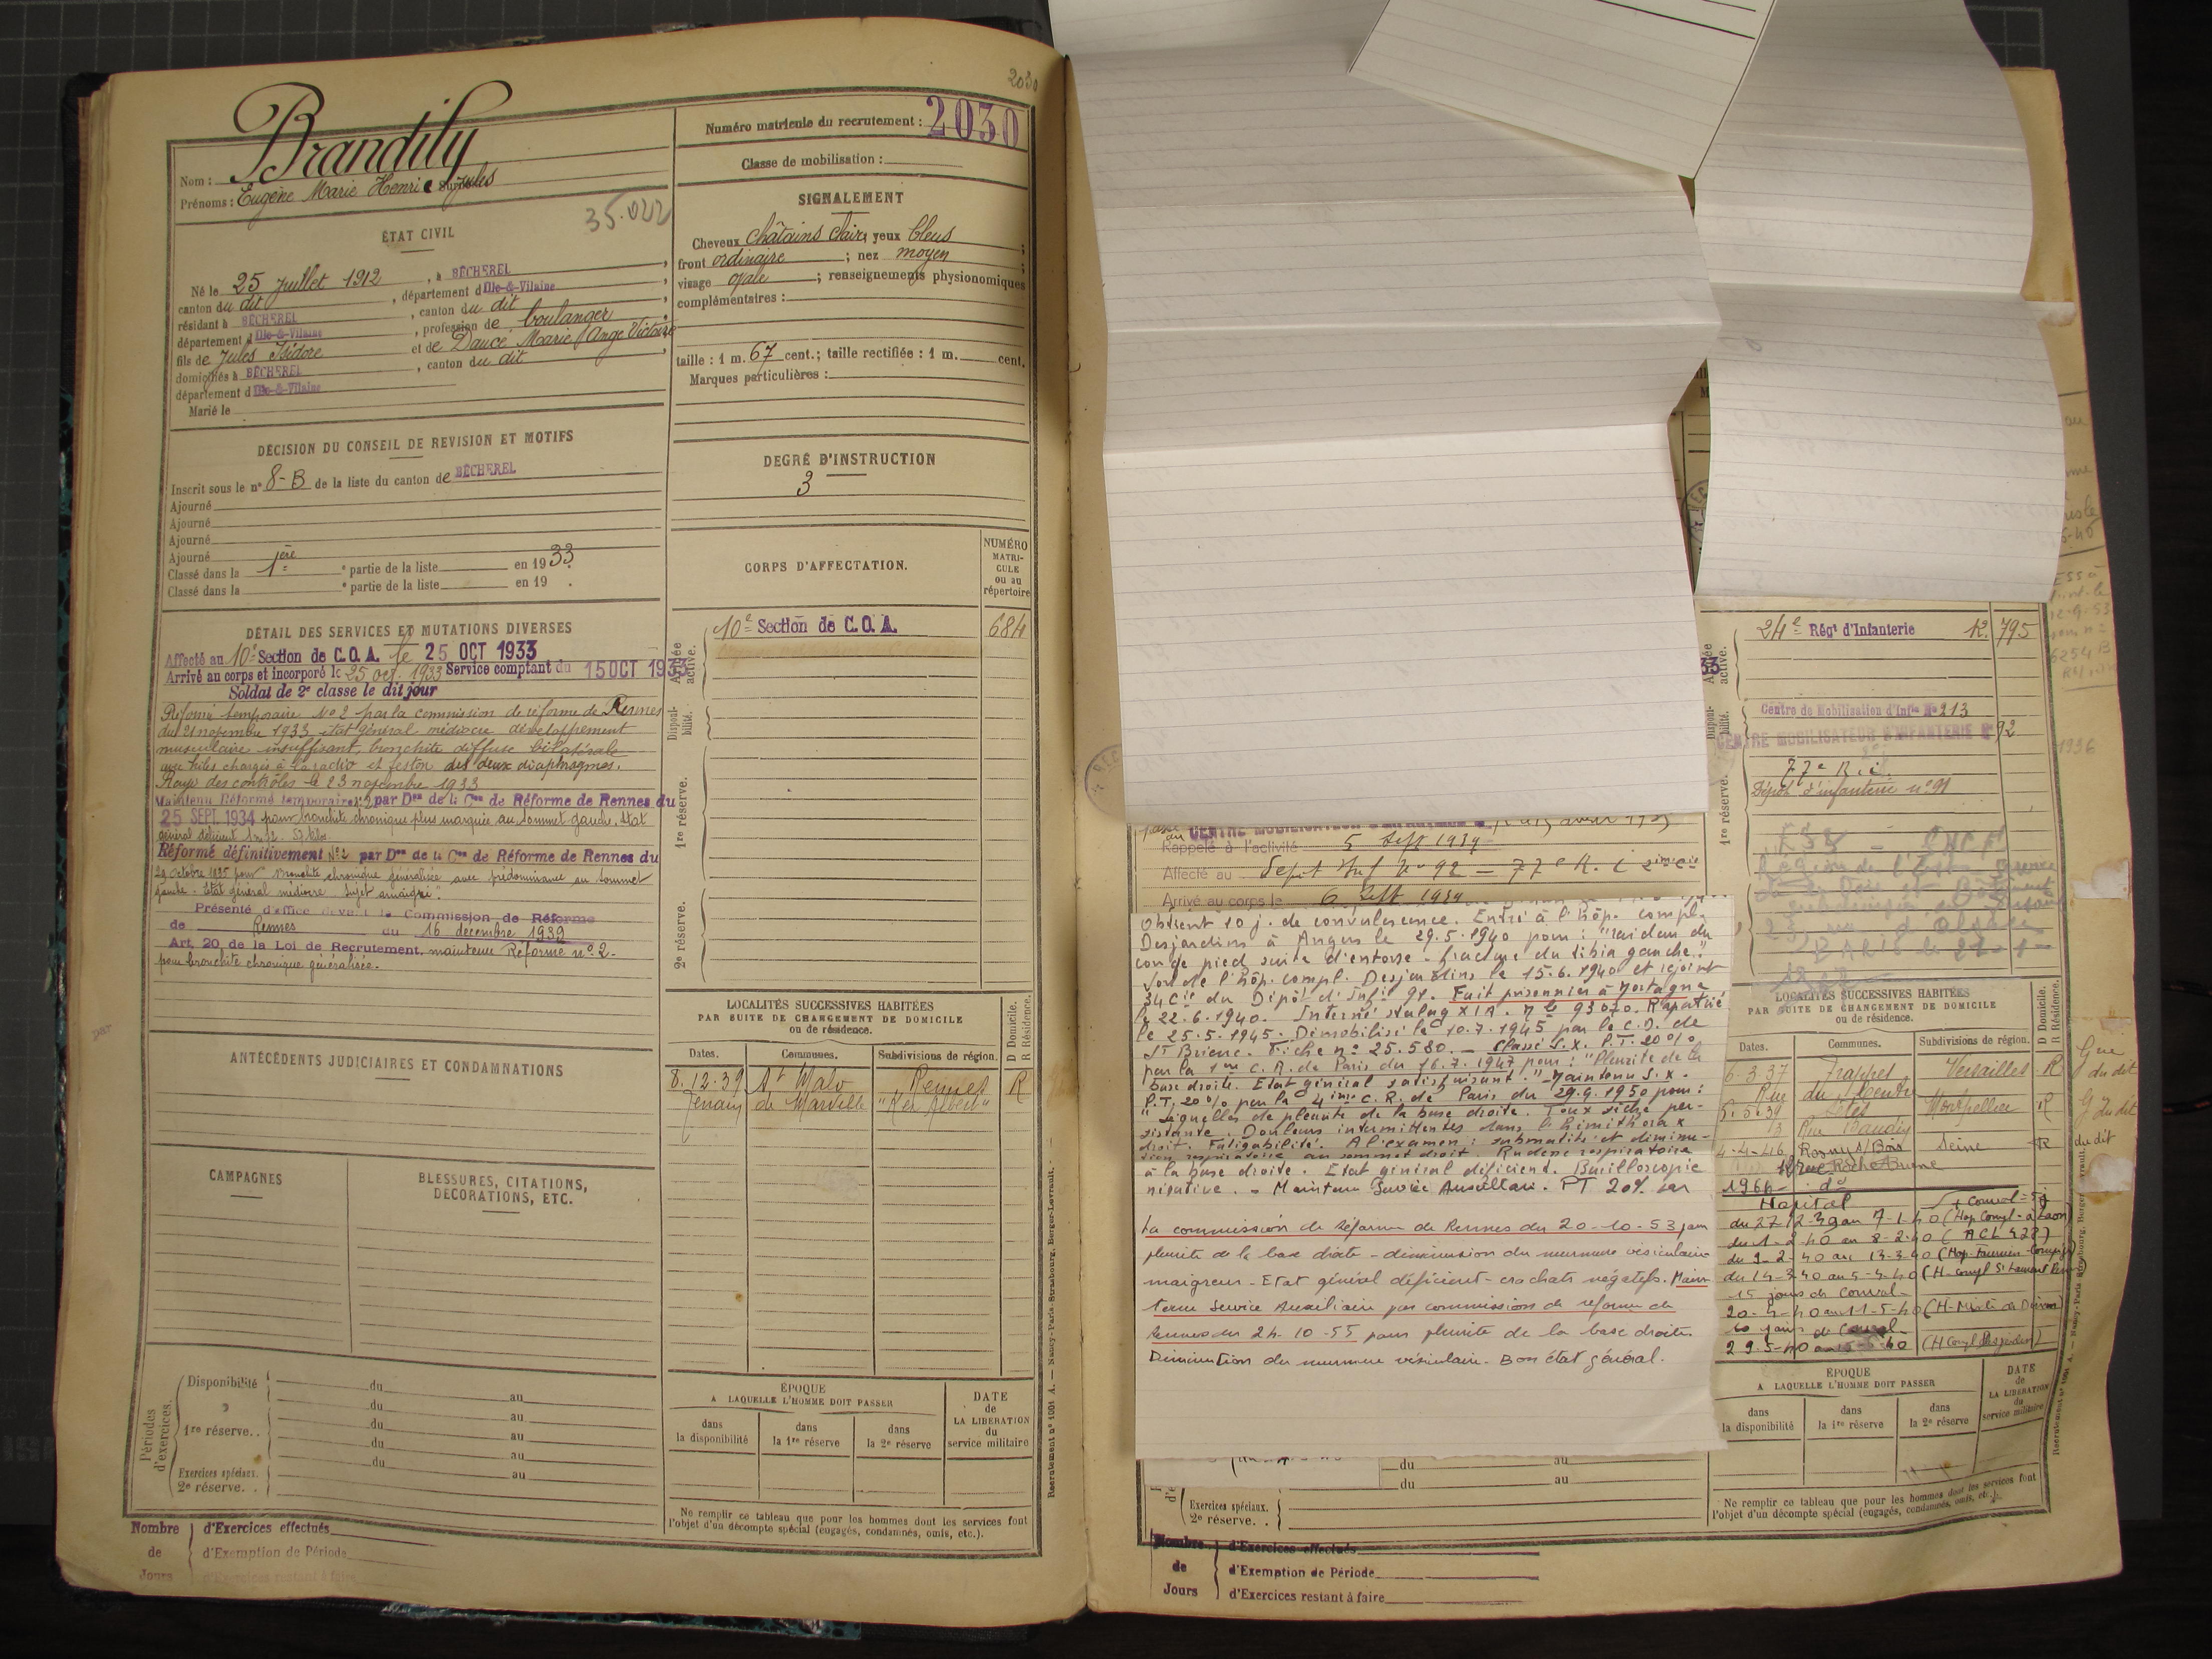 2030
Nom : Brandily
Prénoms : Eugène Marie Henri Jules
35.022
ÉTAT CIVIL
Né le 25 Juillet 1912, à BÉCHEREL,
canton du dit, département d'Ille-&-Vilaine,
résidant à BÉCHEREL, canton du dit,
département d'Ille-&-Vilaine, profession de boulanger,
fils de Jules Isidore et de Daucé Marie Ange Victoire
domiciliés à BÉCHEREL, canton du dit,
département d'Ille-&-Vilaine
Marié le
DÉCISION DU CONSEIL DE REVISION ET MOTIFS
Inscrit sous le n° 8-B de la liste du canton de BÉCHEREL
Ajourné
Ajourné
Ajourné
Ajourné
Classé dans la 1ère partie de la liste en 1933.
Classé dans la e partie de la liste en 19 .
DÉTAIL DES SERVICES ET MUTATIONS DIVERSES
Affecté au 10e Section de C.O.A. le 25 OCT 1933
Arrivé au corps et incorporé le 25 oct. 1933 Service comptant du 15 OCT 1933
Soldat de 2e classe le dit jour
Réformé temporaire No 2 par la commission de réforme de Rennes
du 21 novembre 1933 état général médiocre développement
musculaire insuffisant, bronchite diffuse bilatérale
avec hiles chargés à la radio et feston des deux diaphragmes.
Rayé des contrôles le 23 novembre 1933
Maintenu Réformé temporaire n°2 par Don de la Con de Réforme de Rennes du
25 SEPT. 1934 pour bronchite chronique plus marquée au sommet gauche. Etat
général déficient
Réformé définitivement N°2 par Don de la Con de Réforme de Rennes du
29 Octobre 1935 pour Bronchite chronique généralisée avec prédominance au sommet
gauche - Etat général médiocre. Sujet amaigri".
Présenté d'office devant la Commission de Réforme
de Rennes du 16 décembre 1939
Art. 20 de la Loi de Recrutement. maintenu Réforme n° 2.
pour bronchite chronique généralisée.
ANTÉCÉDENTS JUDICIAIRES ET CONDAMNATIONS
CAMPAGNES
BLESSURES, CITATIONS,
DÉCORATIONS, ETC.
Périodes d'exercices.
Disponibilité du au
du au
1re réserve. . du au
du au
du au
Exercices spéciaux.
2e réserve. .
Nombre de Jours
d'Exercices effectués
d'Exemption de Période
d'Exercices restant à faire
Numéro matricule du recrutement : 2030
Classe de mobilisation :
SIGNALEMENT
Cheveux châtains clair; yeux bleus;
front ordinaire; nez moyen;
visage ovale; renseignements physionomiques
complémentaires :
taille : 1 m. 67 cent.; taille rectifiée : 1 m. cent.
Marques particulières :
DEGRÉ D'INSTRUCTION
3
CORPS D'AFFECTATION.
NUMÉRO
MATRI-
CULE
ou au
répertoire
Armée active.
10e Section de C.O.A. 684
Disponibilité.
1re réserve.
2e réserve.
LOCALITÉS SUCCESSIVES HABITÉES
PAR SUITE DE CHANGEMENT DE DOMICILE
ou de résidence.
D Domicile.
R Résidence.
Dates. Communes. Subdivisions de région.
8.12.39 St Malo Rennes R
"Ker Albert"
ÉPOQUE
A LAQUELLE L'HOMME DOIT PASSER
DATE
de
LA LIBÉRATION
du
service militaire
dans
la disponibilité
dans
la 1re réserve
dans
la 2e réserve
Ne remplir ce tableau que pour les hommes dont les services font
l'objet d'un décompte spécial (engagés, condamnés, omis, etc.).
Recrutement n° 1001 A. — Nancy-Paris-Strasbourg, Berger-Levrault.
CENTRE MOBILISATEUR
Rappelé à l'activité 5 Sept 1939
Affecté au Depot Inf no 92 — 77e R.I 2ème Cie
Arrivé au corps le 6 Sept 1939
Obtient 10 j. de convalescence. Entré à l'hôp. compl.
Desjardins à Angers le 29.5.1940 pour : "raideur du
cou de pied suite d'entorse - fracture du tibia gauche".
Sort de l'hôp. compl. Desjardins le 15.6.1940 et rejoint
34 Cie du Dépôt d'Infie 91. Fait prisonnier à Mortagne
le 22.6.1940. Interné stalag XI A. Mle 93070. Rapatrié
le 25.5.1945. Démobilisé le 10.7.1945 par le C.D. de
St Brieuc. Fiche n° 25.580. — Classé S.X. P.T. 20%
par la 1ère C.R. de Paris du 16.7.1947 pour : "Pleurite de la
base droite. Etat général satisfaisant." Maintenu S.X.
P.T. 20% par la 4ème C.R. de Paris du 29.9.1950 pour :
"Séquelles de pleurite de la base droite. Toux sèche per-
sistante. Douleurs intermittentes dans l'hémithorax
droit. Fatigabilité. A l'examen : submatité et diminu-
tion respiratoire au sommet droit. Rudesse respiratoire
à la base droite. Etat général déficient. Bacilloscopie
négative. - Maintenu Service Auxiliaire. PT 20% par
La commission de Réforme de Rennes du 20-10-53 pour
pleurite de la base droite - diminution du murmure vésiculaire
maigreur - Etat général déficient - crachats négatifs. Main-
tenu Service Auxiliaire par commission de réforme de
Rennes du 24-10-55 pour pleurite de la base droite.
Diminution du murmure vésiculaire. Bon état général.
du au
du au
Exercices spéciaux.
2e réserve. .
Nombre de Jours
d'Exercices effectués
d'Exemption de Période
d'Exercices restant à faire
24e Régt d'Infanterie 795
Centre de Mobilisation d'Infie N° 213
CENTRE MOBILISATEUR D'INFANTERIE N° 92
77e R.I.
Dépôt d'infanterie n° 91
Région de l'Est
LOCALITÉS SUCCESSIVES HABITÉES
PAR SUITE DE CHANGEMENT DE DOMICILE
ou de résidence.
D Domicile.
R Résidence.
Dates. Communes. Subdivisions de région.
6.3.37 Trappes Versailles R
5.5.39 Sète Montpellier R
Rue Baudin
4-4-46 Rosny s/Bois Seine R
Hopital
du 27-12-39 au 7-1-40 (Hop Compl - à Laon)
du 1-2-40 au 8-2-40
du 9-2-40 au 13-3-40
du 14-3-40 au 5-4-40 (H-compl St Laurent
15 jours de Conval
20-4-40 au 11-5-40
10 jours de Conval
29-5-40 (H Compl Desjardins)
ÉPOQUE
A LAQUELLE L'HOMME DOIT PASSER
DATE
de
LA LIBÉRATION
du
service militaire
dans
la disponibilité
dans
la 1re réserve
dans
la 2e réserve
Ne remplir ce tableau que pour les hommes dont les services font
l'objet d'un décompte spécial (engagés, condamnés, omis, etc.).